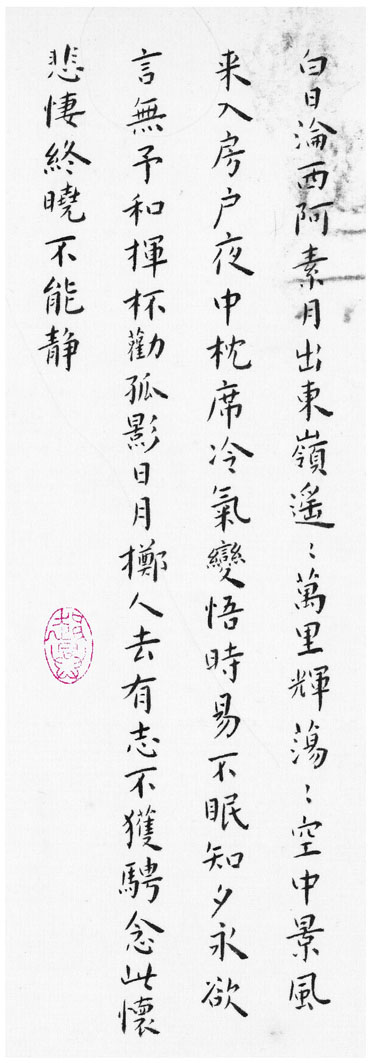 白日淪西阿素月出東嶺遥〻萬里輝蕩〻空中景風
来入房户夜中枕席冷氣變悟時易不眠知夕永欲
言無予和揮杯勸孤影日月擲人去有志不獲騁念此懷
悲悽終曉不能静